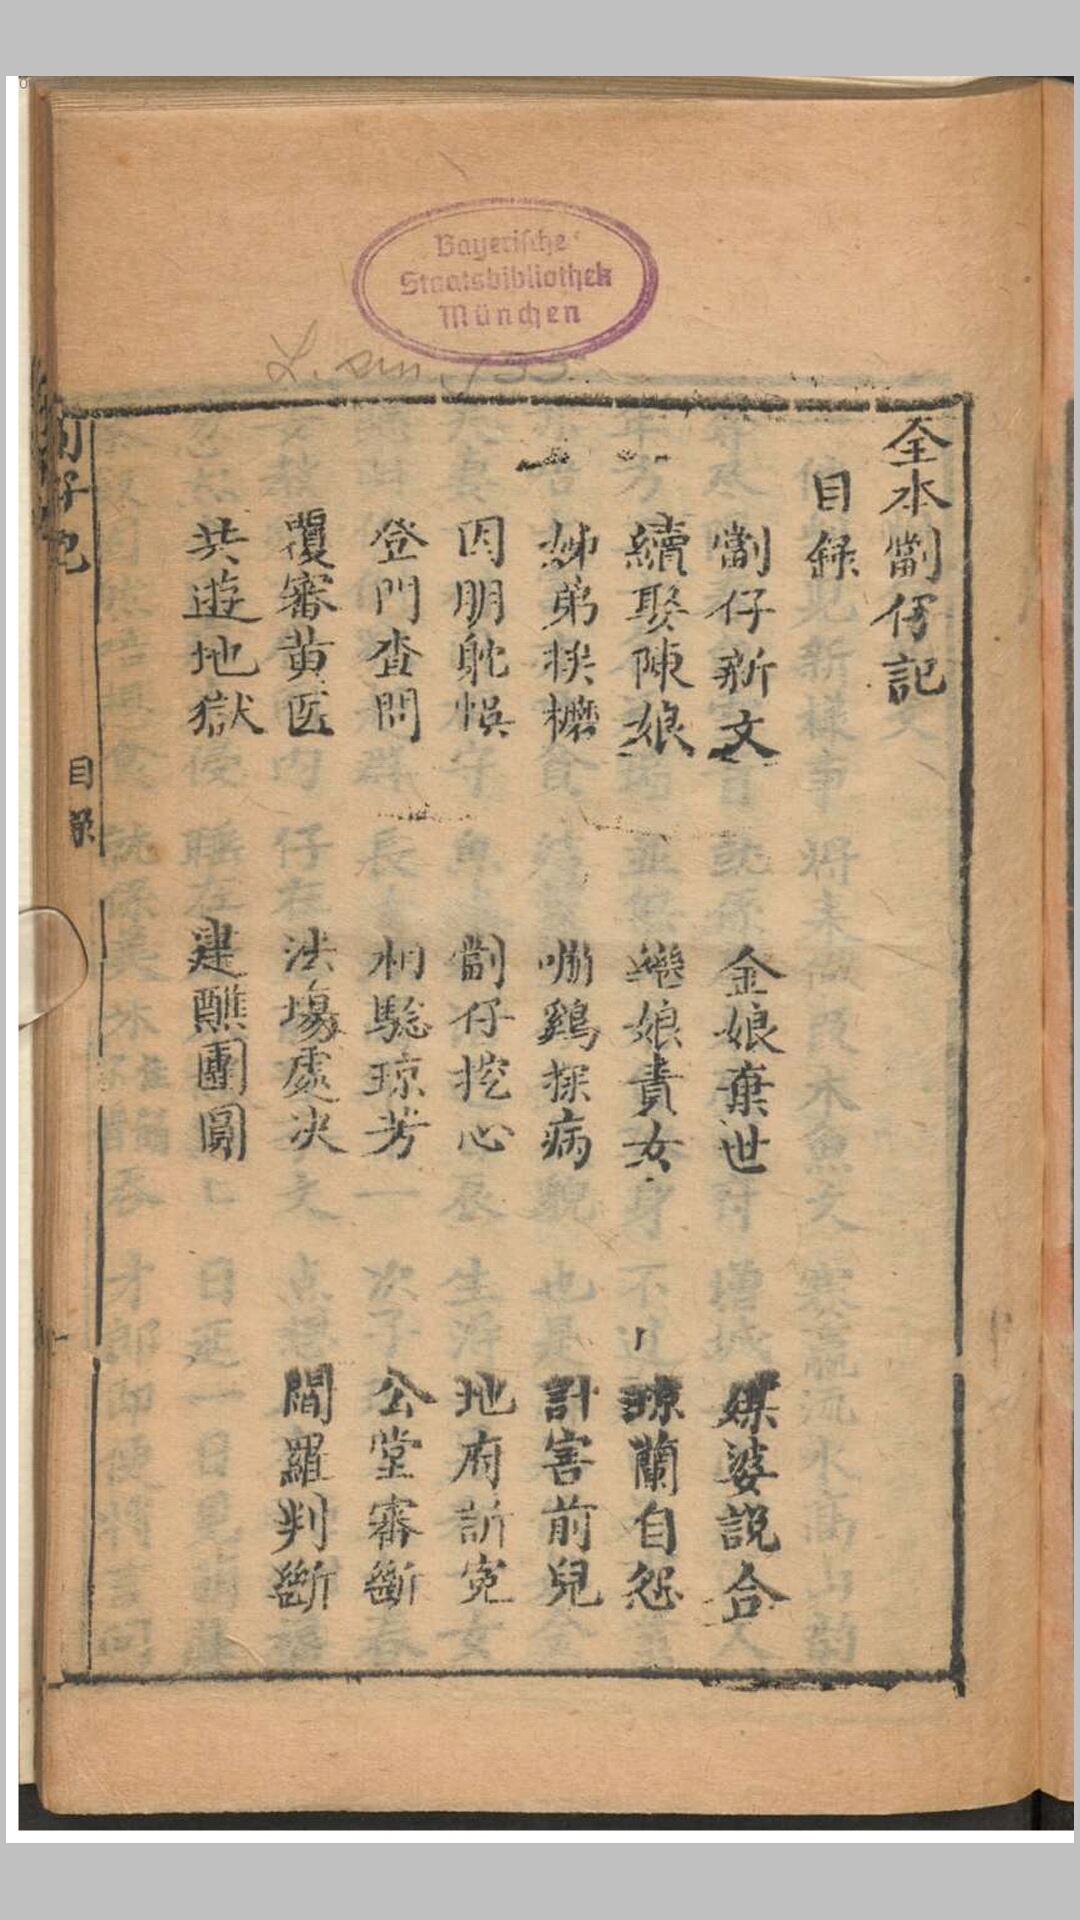 Bayerische
Staatsbibliothek
München
L. sin.
全本劏仔記
目録
劏仔新文 金娘棄世 媒婆説合
續娶陳娘 戀娘責女 琼蘭自怨
姊弟挨磨 嘣鷄探病 計害前兒
因朋躭悞 劏仔挖心 地府訴寃
登門查問 相騐琼芳 公堂審斷
覆審黄医 法塲處决 閻羅判斷
共遊地獄 建醮團圓
目録